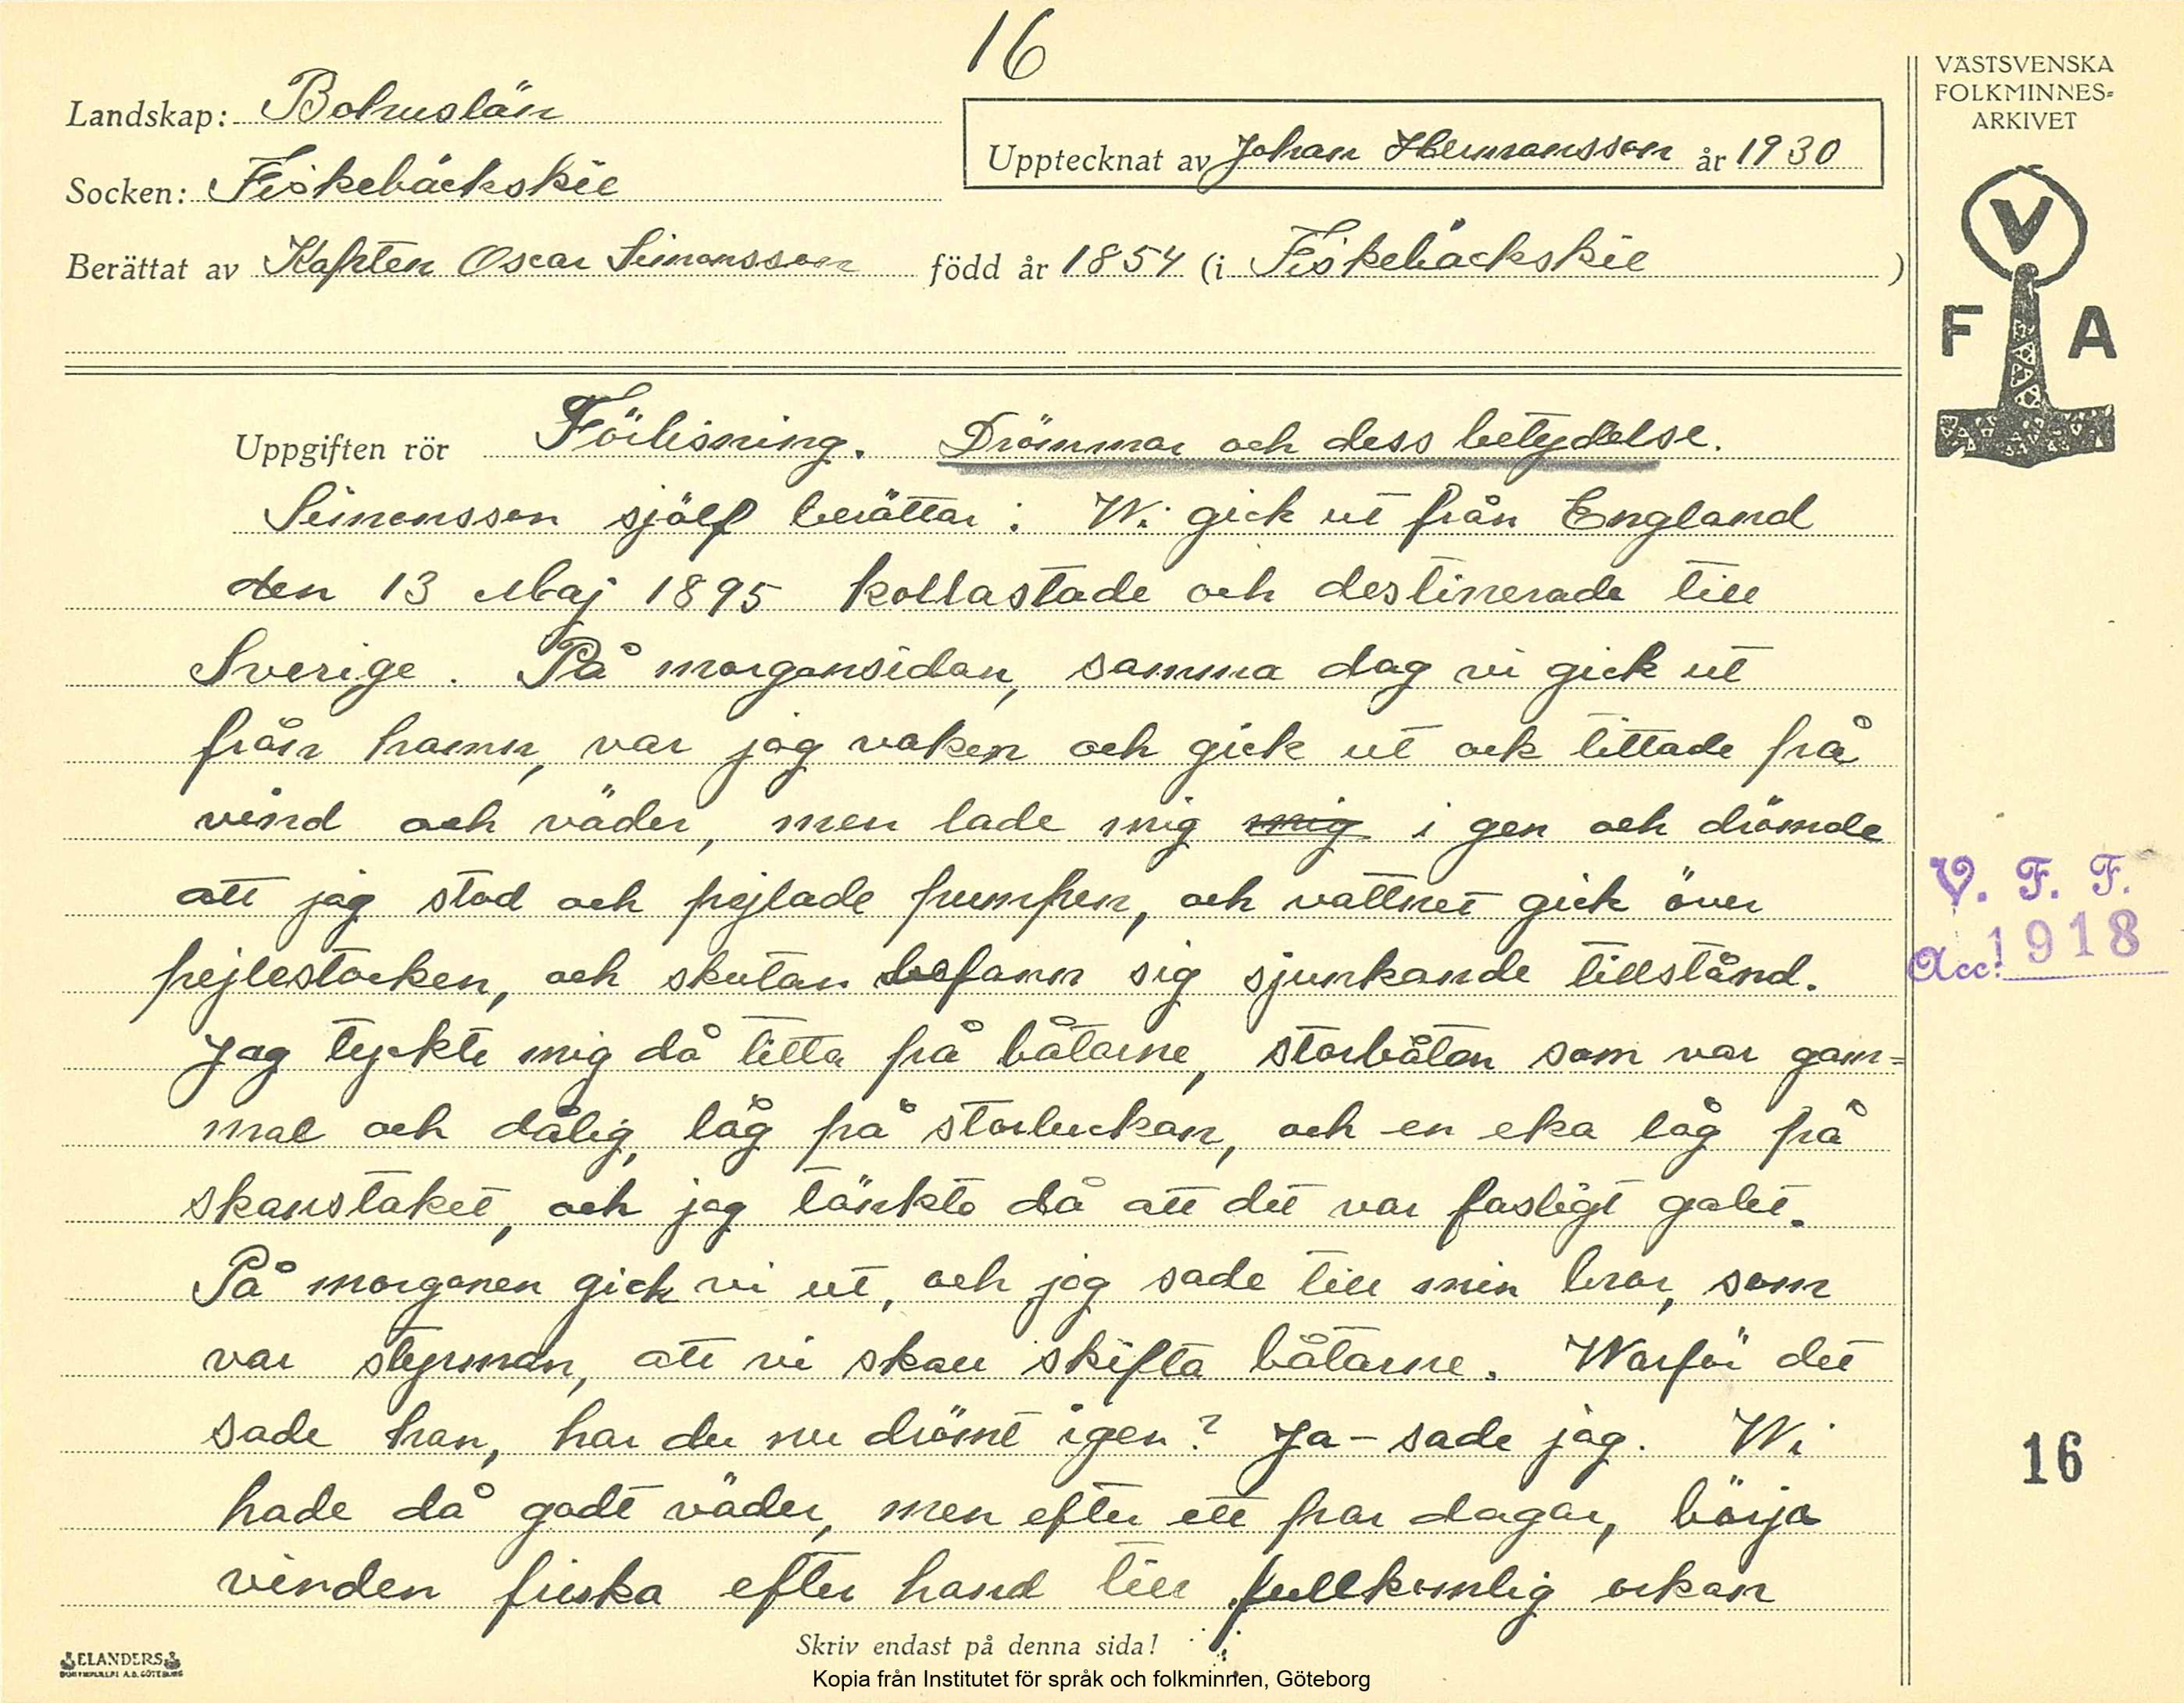 16
Landskap: Bohuslän
Upptecknat av Johan Hermansson år 1930
Socken: Fiskebäckskil
Berättat av Kapten Oscar Simonsson född år 1854 (i Fiskebäckskil )
VÄSTSVENSKA
FOLKMINNES=
ARKIVET
V
F A
Uppgiften rör Förlisning. Drömmar och dess betydelse.
Simonsson sjölf berättar: Wi gick ut från England
den 13 Maj 1895 kollastade och destinerade till
Sverige. På morgonsidan, samma dag vi gick ut
från hamn, var jag vaken och gick ut ock tittade på
vind och väder, men lade mig mig i gen och drömde
att jag stod och pejlade pumpen, och vattnet gick över
pejlestocken, och skutan befann sig sjunkande tillstånd.
Jag tyckte mig då titta på båtarne, storbåten som var gam=
mal och dålig, låg på storluckan, och en eka låg på
skanstaket, och jag tänkte då att det var fasligt galet.
På morgonen gick vi ut, och jag sade till min bror, som
var styrman, att vi skall skifta båtarne. Warför det
sade han, har du nu drömt igen? Ja - sade jag. Wi
hade då godt väder, men efter ett par dagar, börja
vinden friska efter hand till fullkomlig orkan
V. F. F.
Acc! 1918
16
Skriv endast på denna sida!
ELANDERS
Kopia från Institutet för språk och folkminnen, Göteborg